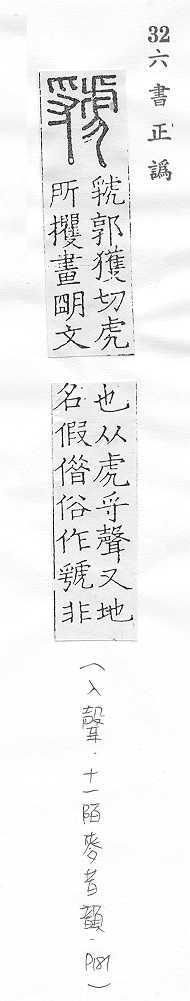 32 六書正譌
虢郭獲切虎
所攫畫朙文
也从虎寽聲又地
名假借俗作號非
(入聲.十一陌麥昔韻.P187)